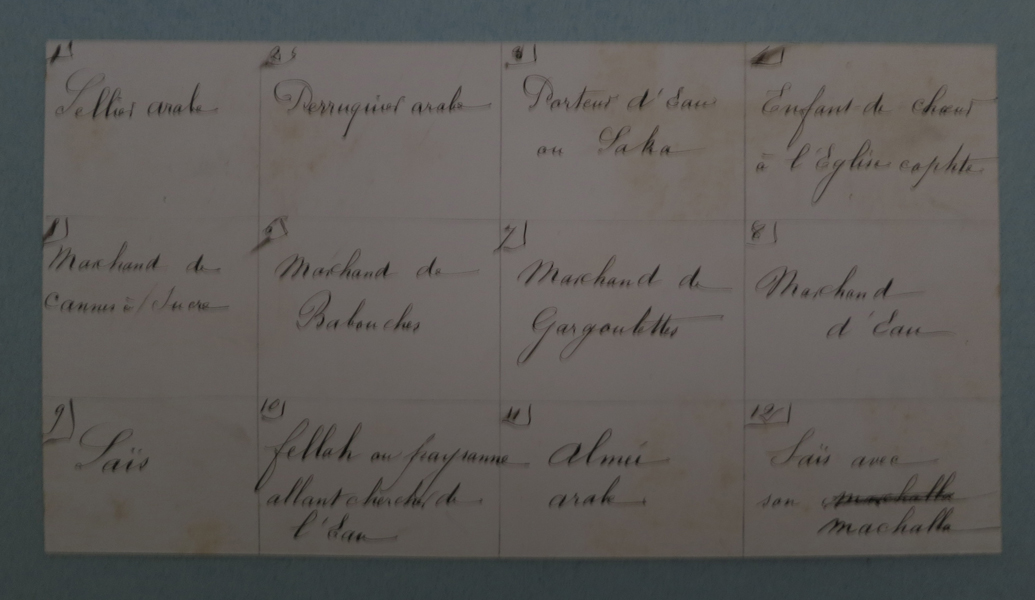 1
Sellier arabe
2
Perruquier arabe
3
Porteur d'Eau
ou Saka
4
Enfant de chœur
à l'Eglise cophte
5
Marchand de
Cannes à Sucre
6
Marchand de
Babouches
7
Marchand de
Gargoulettes
8
Marchand
d'Eau
9
Saïs
10
fellah ou paysanne
allant chercher de
l'Eau
11
Almée
arabe
12
Saïs avec
son machalla
machalla